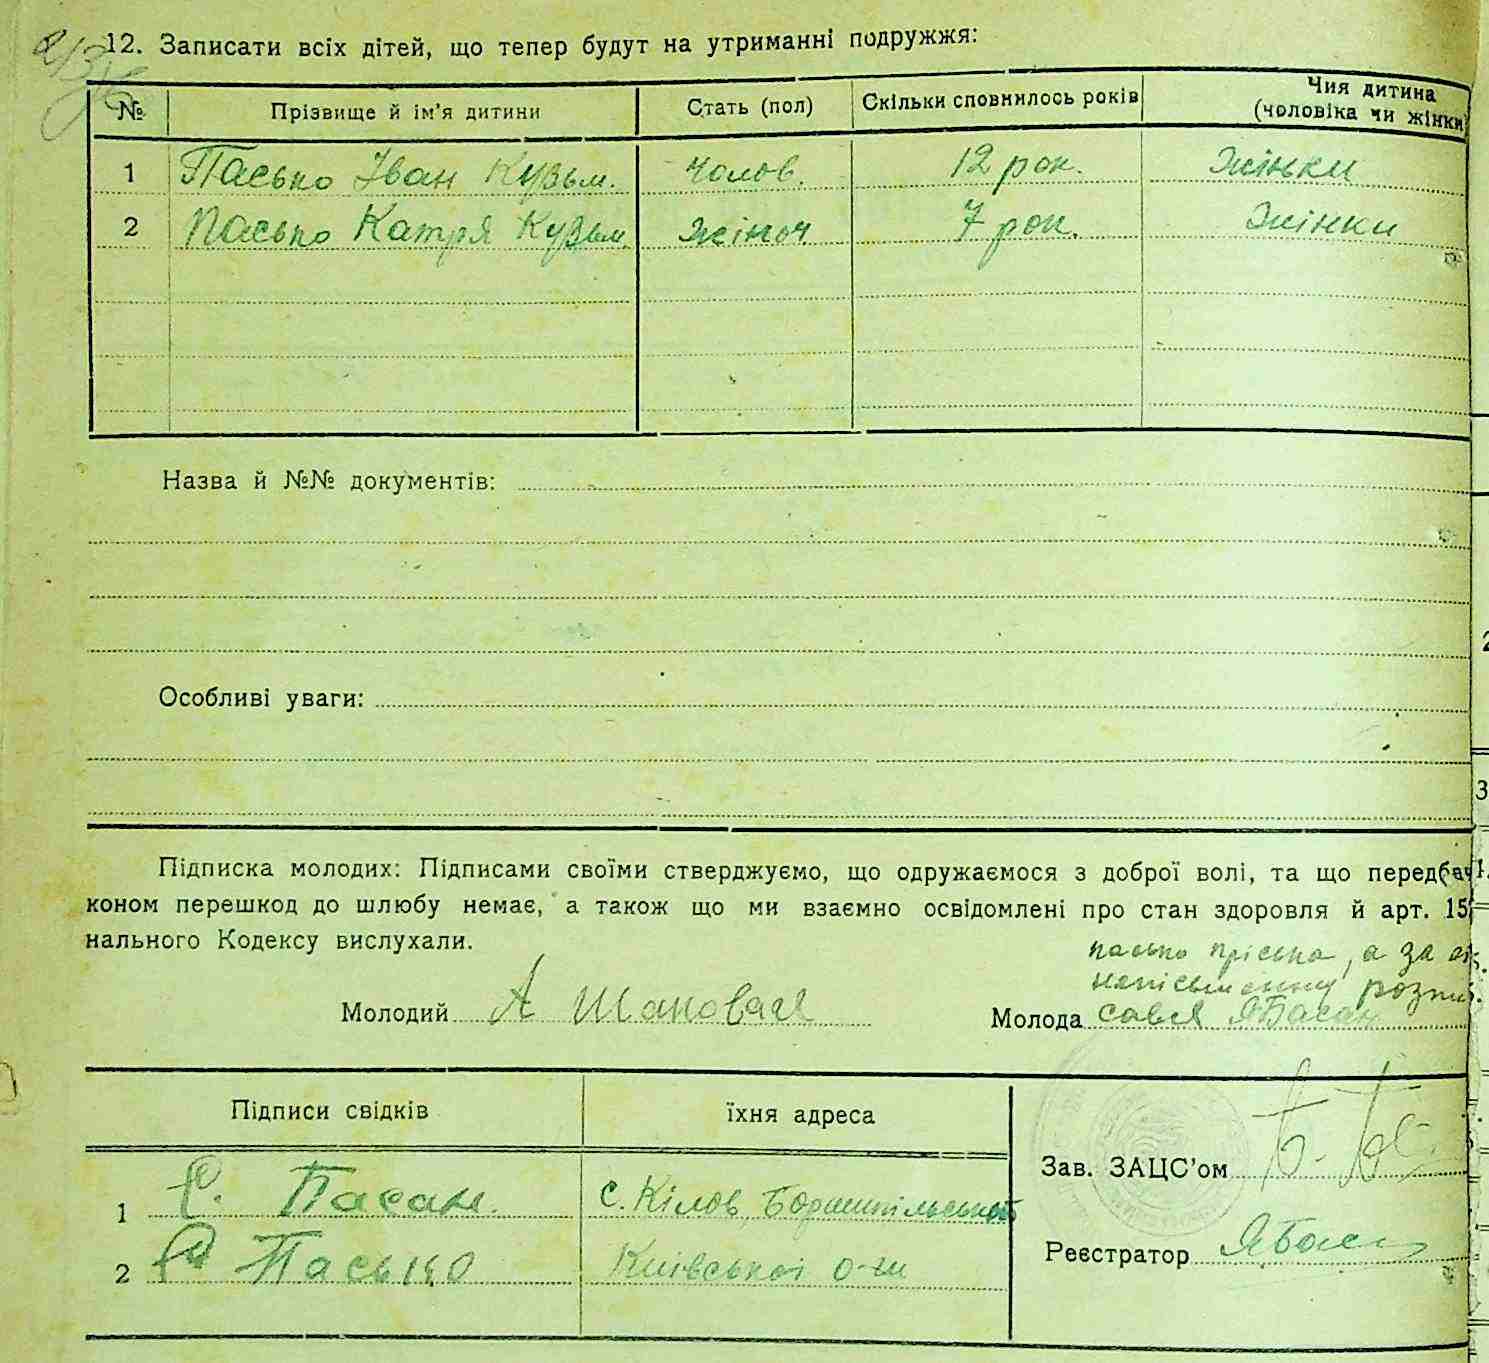 12. Записати всіх дітей, що тепер будут на утриманні подружжя:
№ Прізвище й ім'я дитини Стать (пол) Скільки сповнилось років Чия дитина
(чоловіка чи жінки)
1 Пасько Іван Кузьм. чолов. 12 рок. жіньки
2 Пасько Катря Кузьм. жіноч 7 рок. жінки
Назва й №№ документів:
Особливі уваги:
Підписка молодих: Підписами своїми стверджуємо, що одружаємося з доброї волі, та що перед
коном перешкод до шлюбу немає, а також що ми взаємно освідомлені про стан здоровля й арт. 15
нального Кодексу вислухали.
пасько Пріська, а за
непісьменну розпи
Молодий А Шаповал Молода
Підписи свідків їхня адреса
Зав. ЗАЦС'ом
1 Пасан. с. Кілов, Бориспільської
Реєстратор ЯБас
2 Пасько Київської о-ти